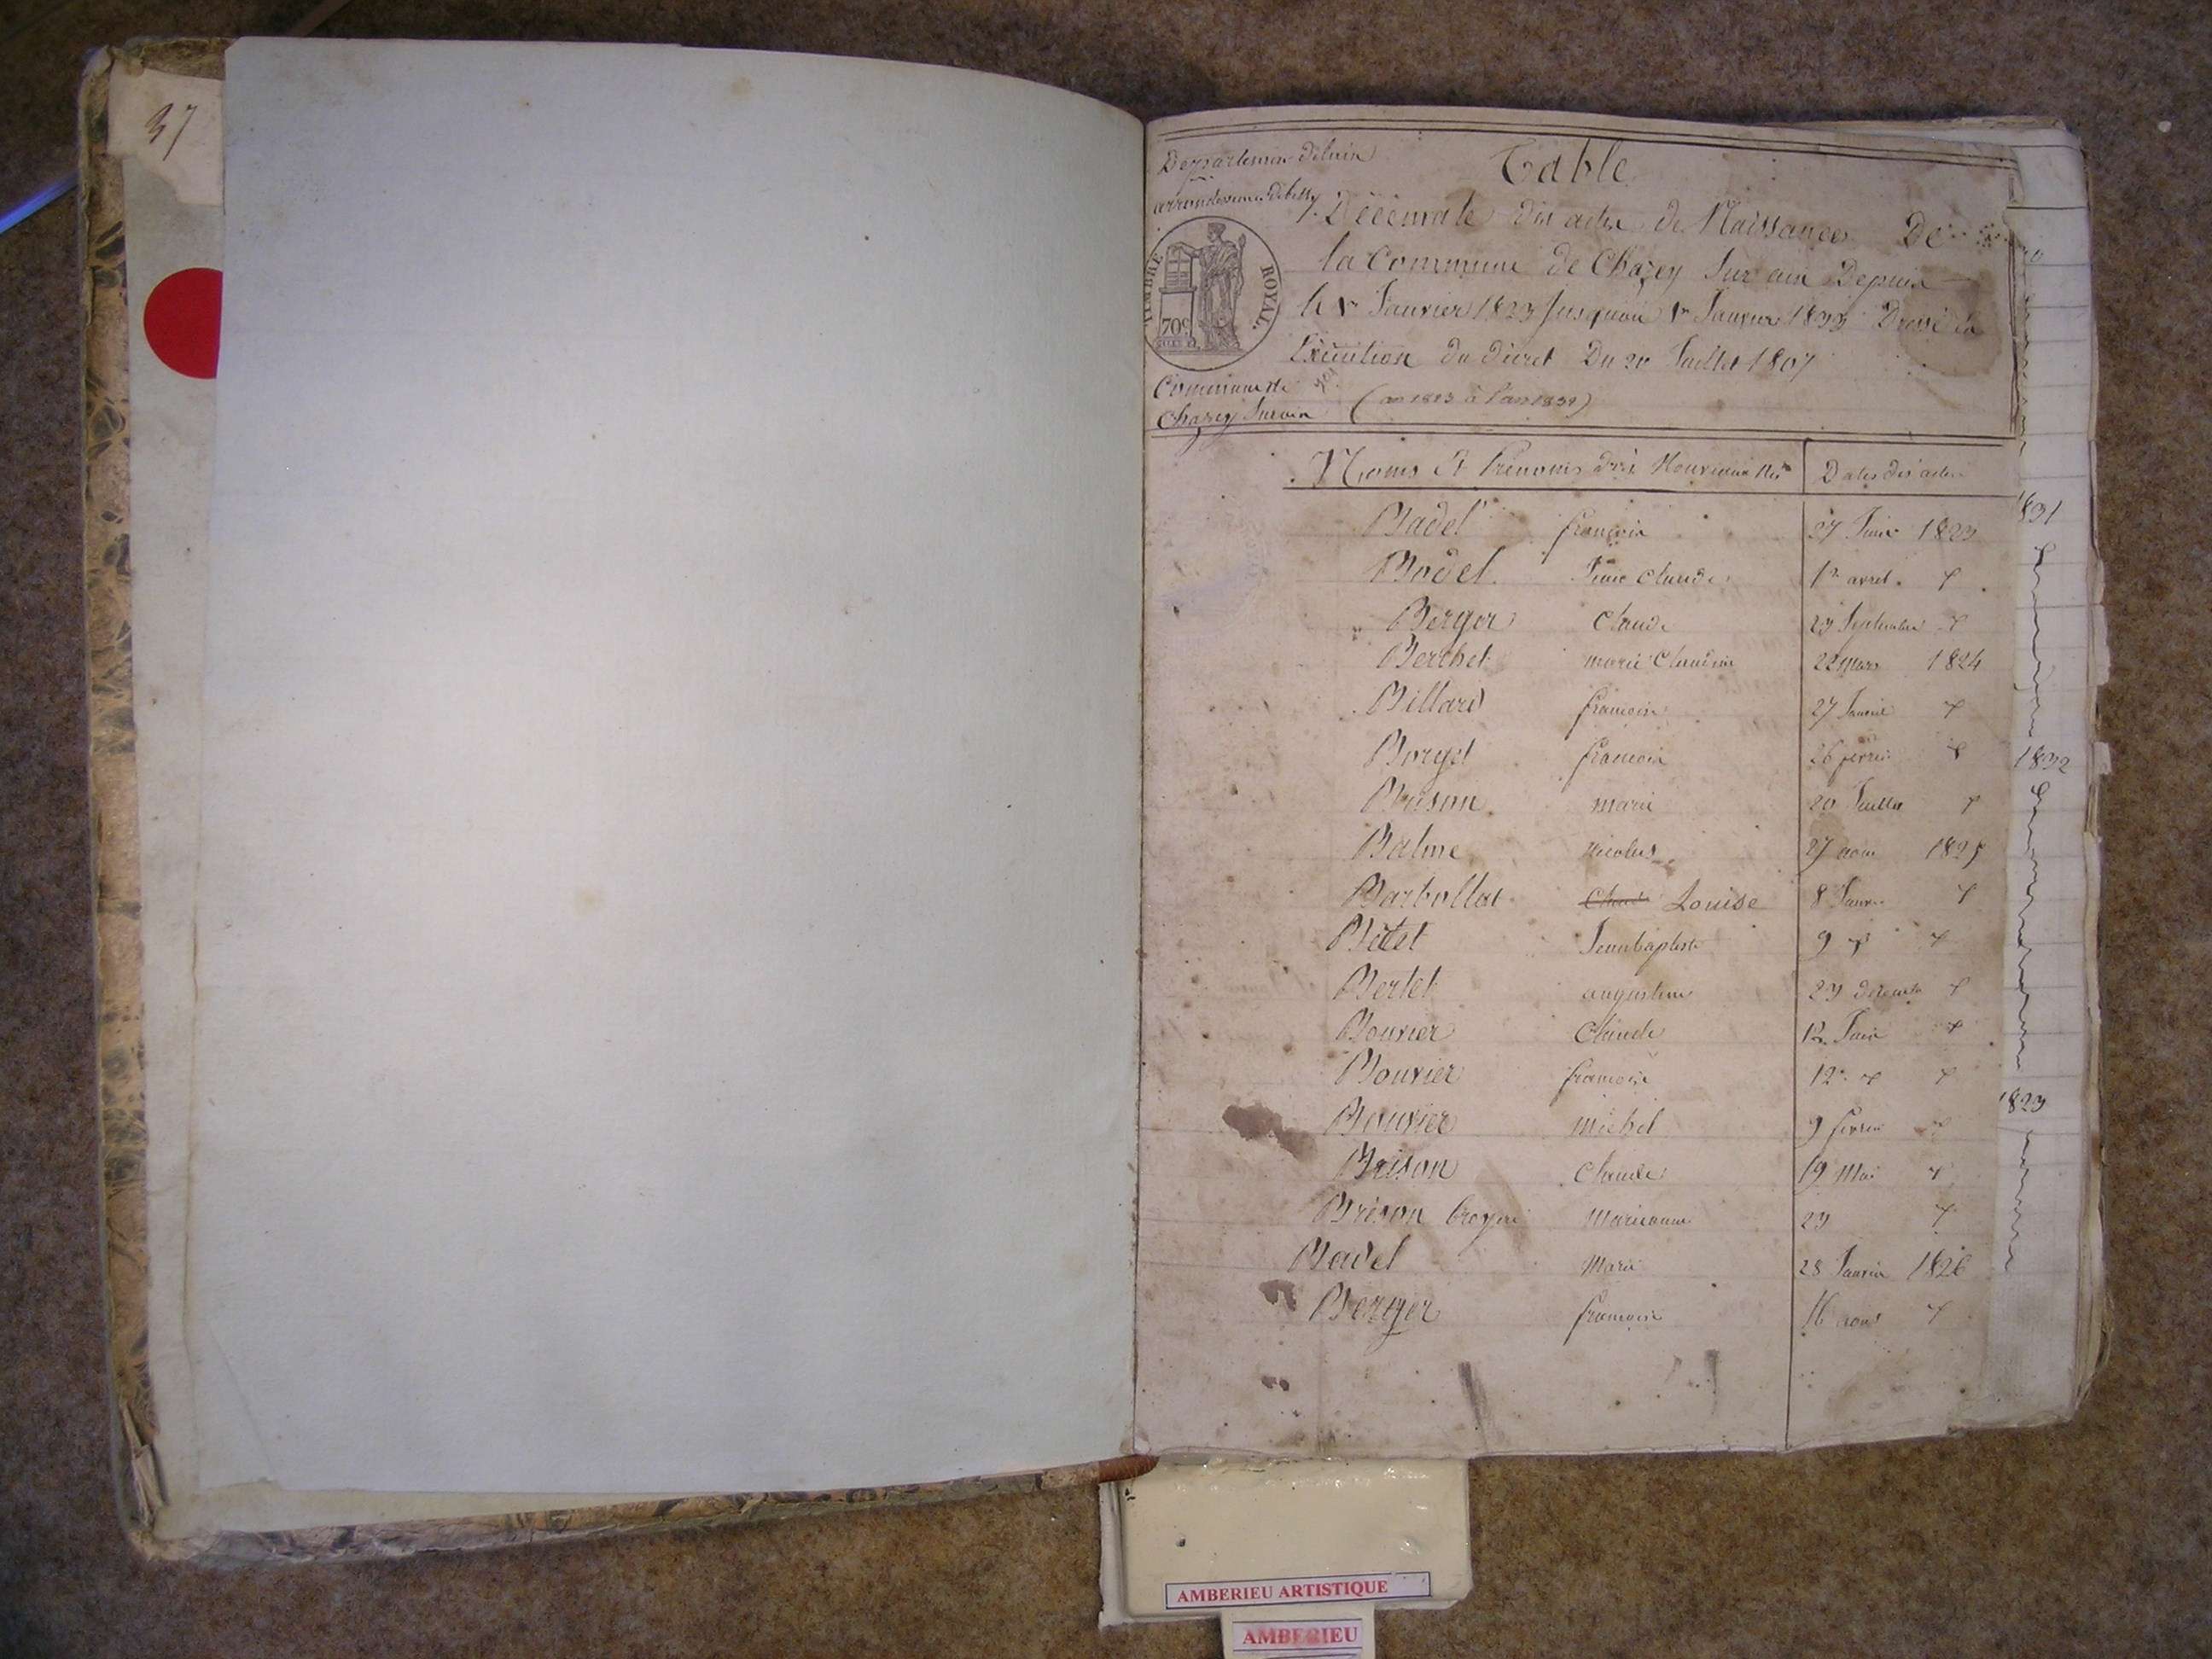 37
Departement Delain
Table
arrondissement debelley
Décennale des actes de Naissances De
TIMBRE ROYAL
70c
la Commune de Chazey Sur ain Depuis
le 1er Janvier 1823 Jusquau 1er Janvier 1833 Dressé en
Exécution du décret Du 20 Juillet 1807
Commune de
Chazey Surain
(an 1823 à l'an 1832)
Noms Et Prénoms des Nouveaux Nés Dates des actes
Badel francois 27 Juin 1823
Bodel Claude 1er avril
Berger Claude 23 Septembre
Berthet marie Claudine 22 mars 1824
Billard francoise 27 Janvier
Borget francois 26 fevrier
Brison marie 20 Juillet
Balme nicolas 27 aout 1825
Barbollat Claude Louise 8 Janvier
Betet Jean baptiste 9
Bertet augustine 23 decembre
Bouvier Claude 12 Juin
Bouvier francoise 12
Bouvier michel 9 fevrier
Brison Claude 19 Mai
Brison Marieanne 23
Badel Marie 28 Janvier 1826
Berger francoise 16 aout
1831
1832
1823
AMBERIEU ARTISTIQUE
AMBERIEU